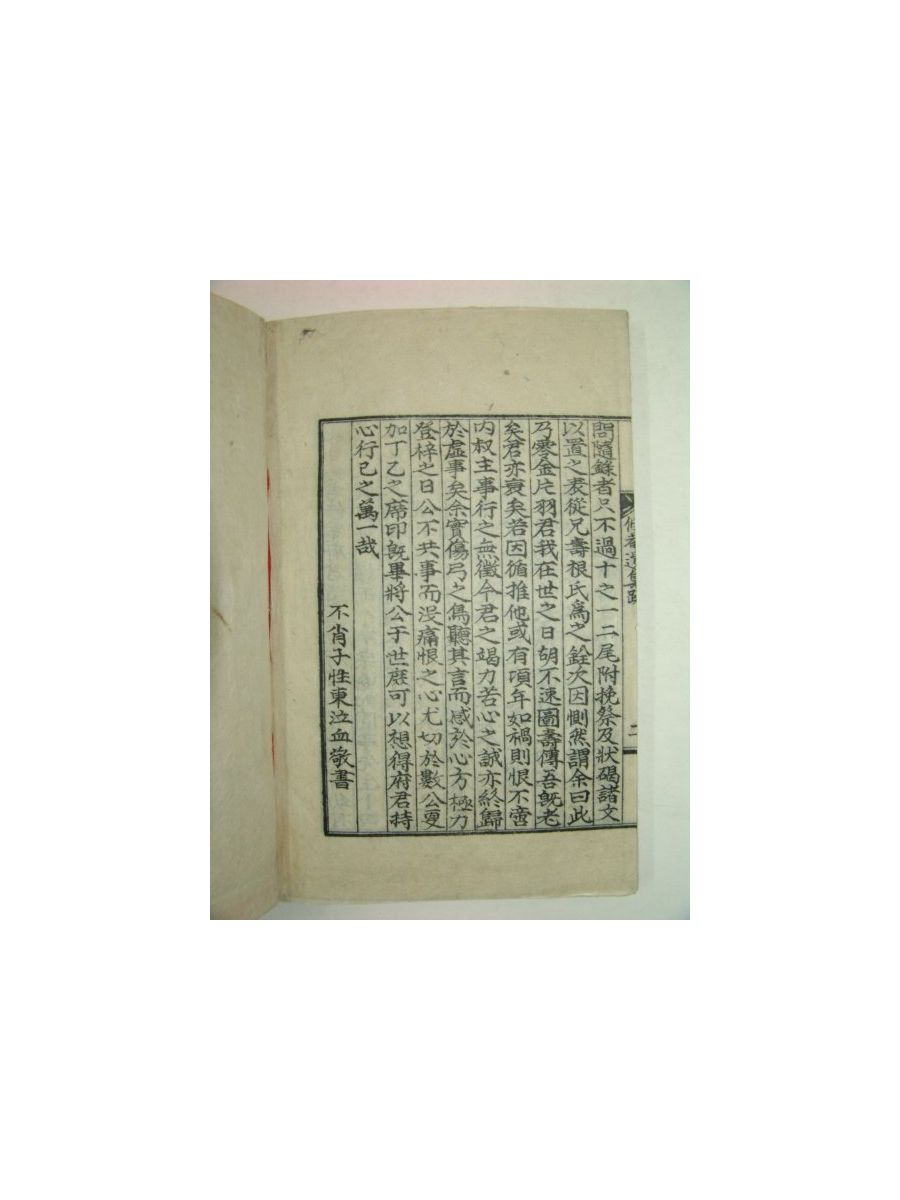 問隨錄者只不過十之一二尾附挽祭及狀碣諸文
以置之表從兄壽根氏爲之銓次因惻然謂余曰此
乃零金片羽君我在世之日胡不速圖壽傳吾旣老
矣君亦衰矣若因循推他或有項年如禍則恨不啻
內叔主事行之無徵今君之竭力苦心之誠亦終歸
於虛事矣余實傷弓之鳥聽其言而感於心方極力
登梓之日公不共事而沒痛恨之心尤切於數公更
加丁乙之席印旣畢將公于世庶可以想得府君持
心行己之萬一哉
不肖子性東泣血敬書
遺集跋
二